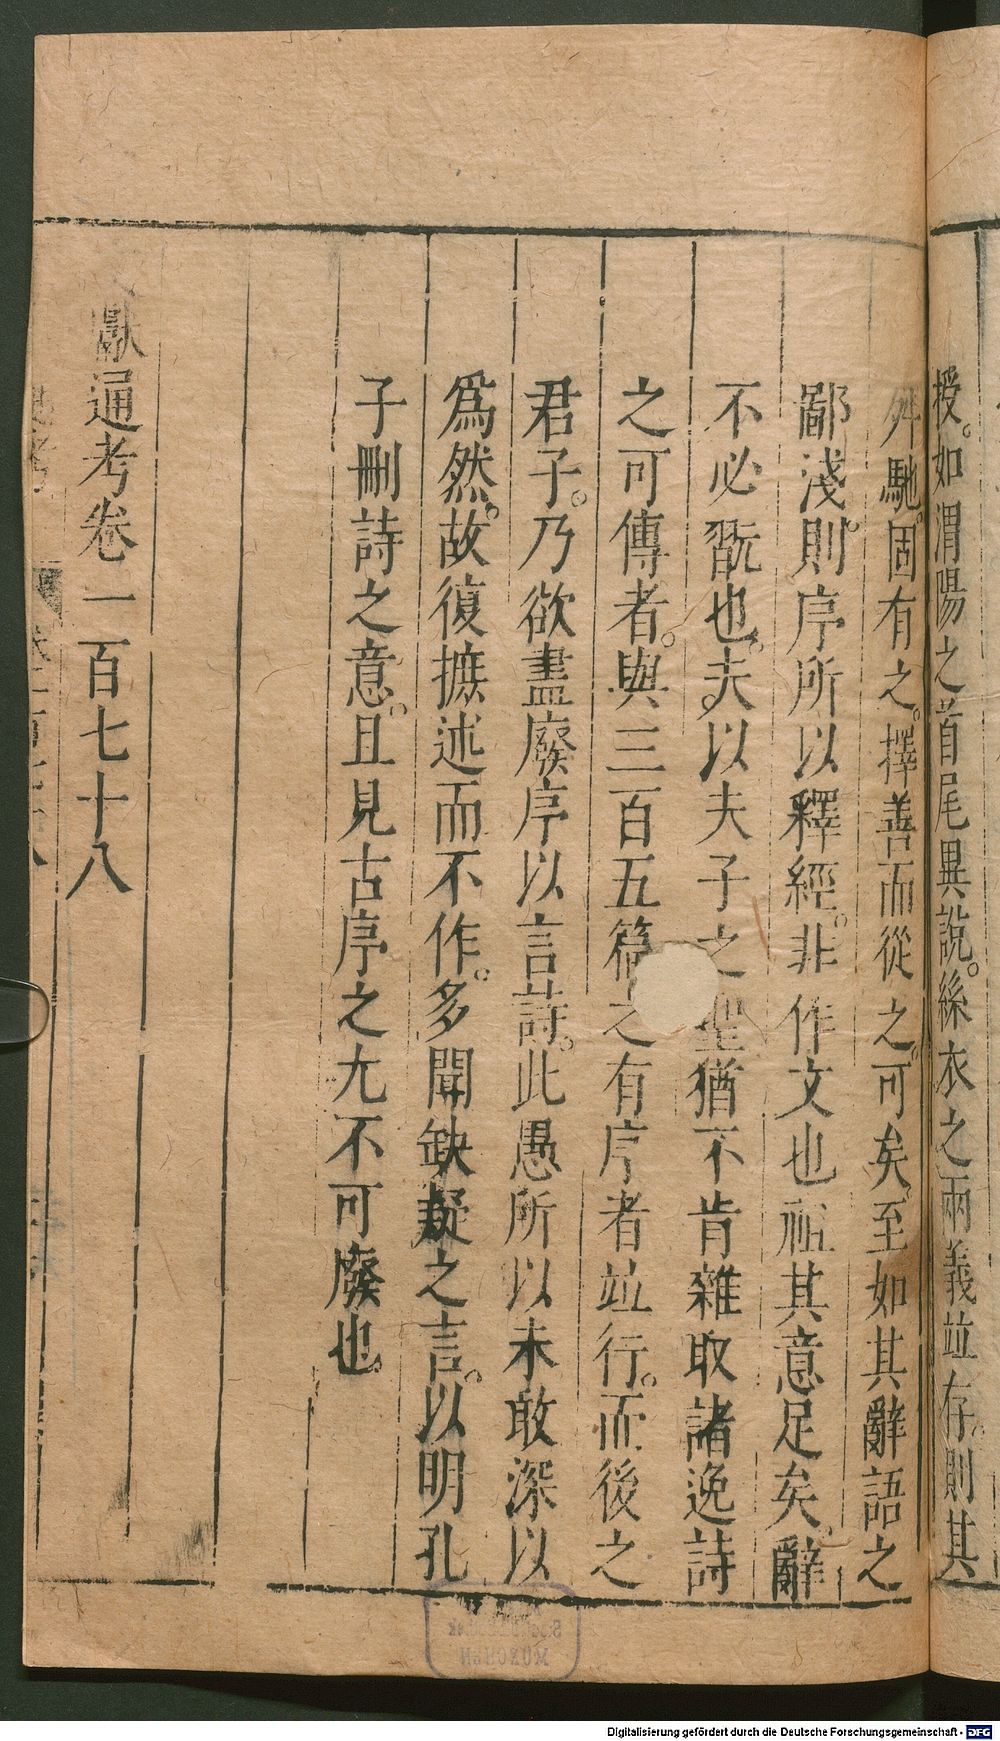 授。如渭陽之首尾異說。絲衣之兩義並存。則其
舛馳。固有之。擇善而從之。可矣。至如其辭語之
鄙淺。則序所以釋經。非作文也。祖其意足矣。辭
不必翫也。夫以夫子之聖猶不肯雜取諸逸詩
之可傳者。與三百五篇之有序者並行。而後之
君子。乃欲盡廢序以言詩。此愚所以未敢深以
爲然。故復摭述而不作。多聞缺疑之言。以明孔
子刪詩之意。且見古序之尤不可廢也。
獻通考卷一百七十八
MÜNCHEN
Digitalisierung gefördert durch die Deutsche Forschungsgemeinschaft - DFG